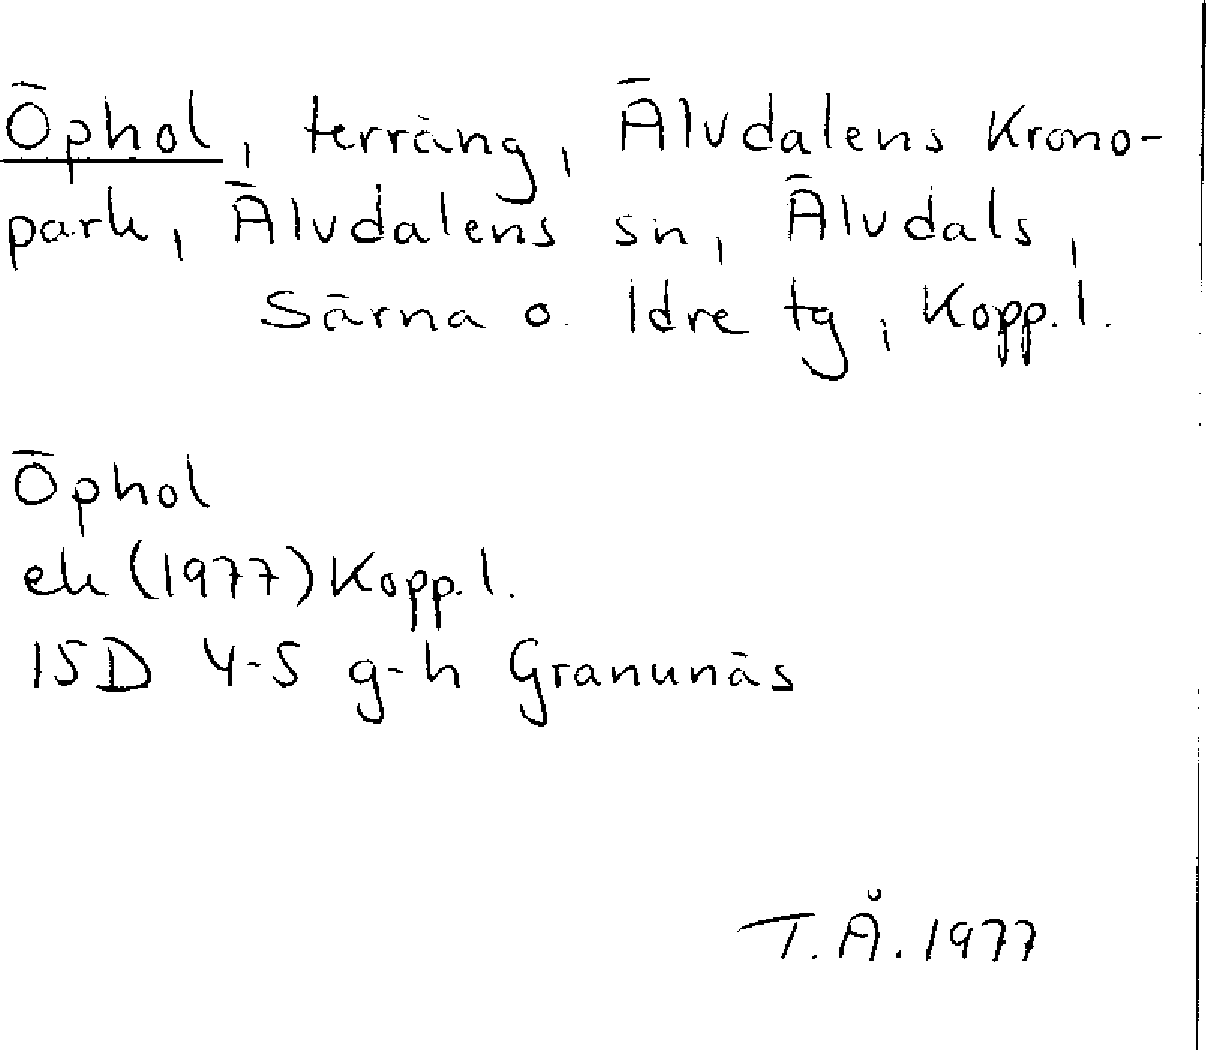 Öphol, terräng, Älvdalens Krono-
park, Älvdalens sn, Älvdals,
Särna o. Idre tg, Kopp. l.
Öphol
ek (1977) Kopp. l.
15D 4-5 g-h Granunäs
T.Å. 1977